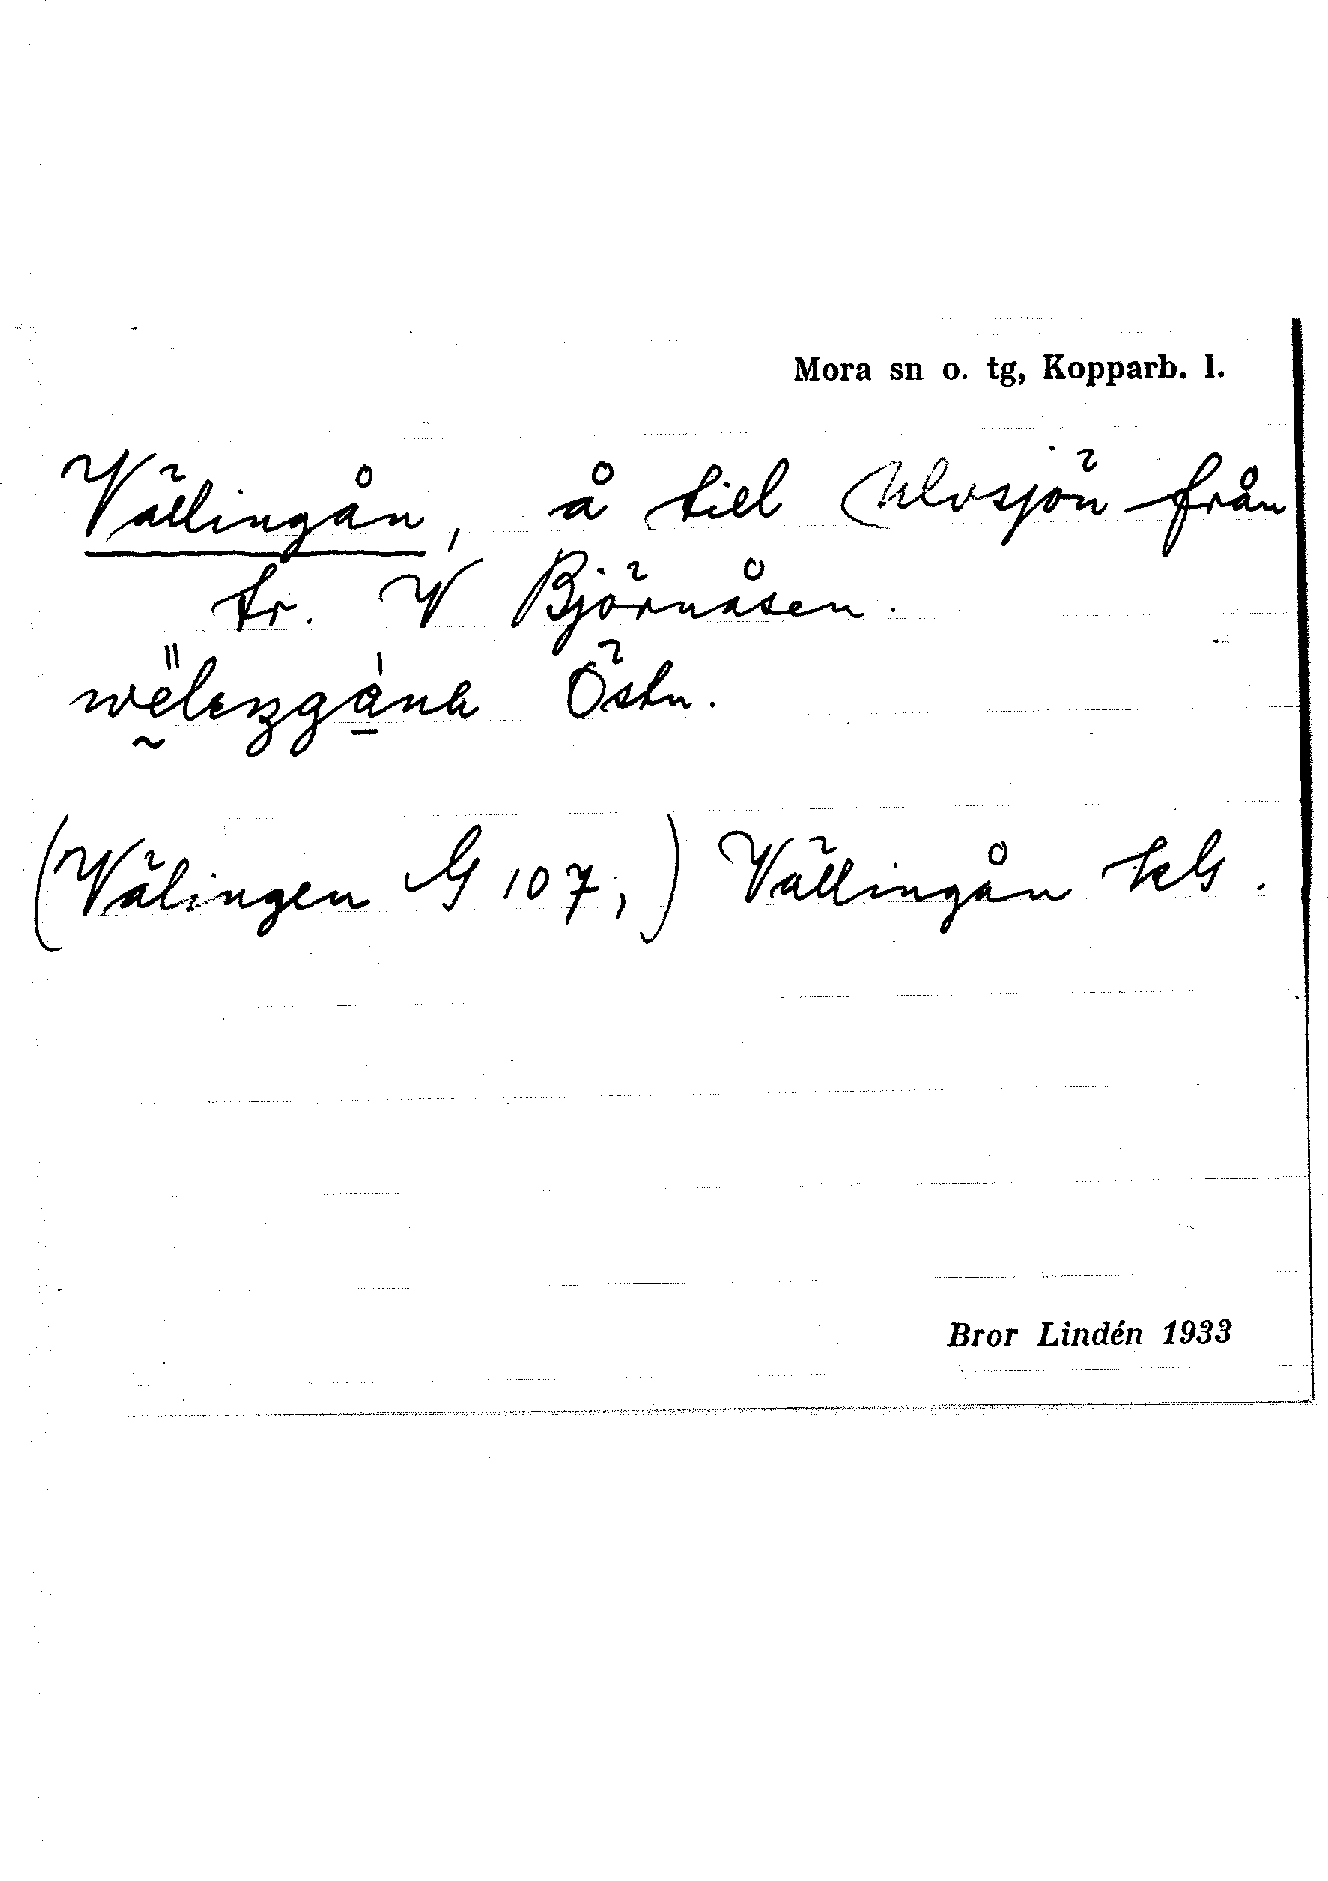 Mora sn o. tg, Kopparb. l.
Vällingån, å till Ulvsjön från
tr. V Björnåsen.
Östn.
(Välingen G 107,) Vällingån
Bror Lindén 1933